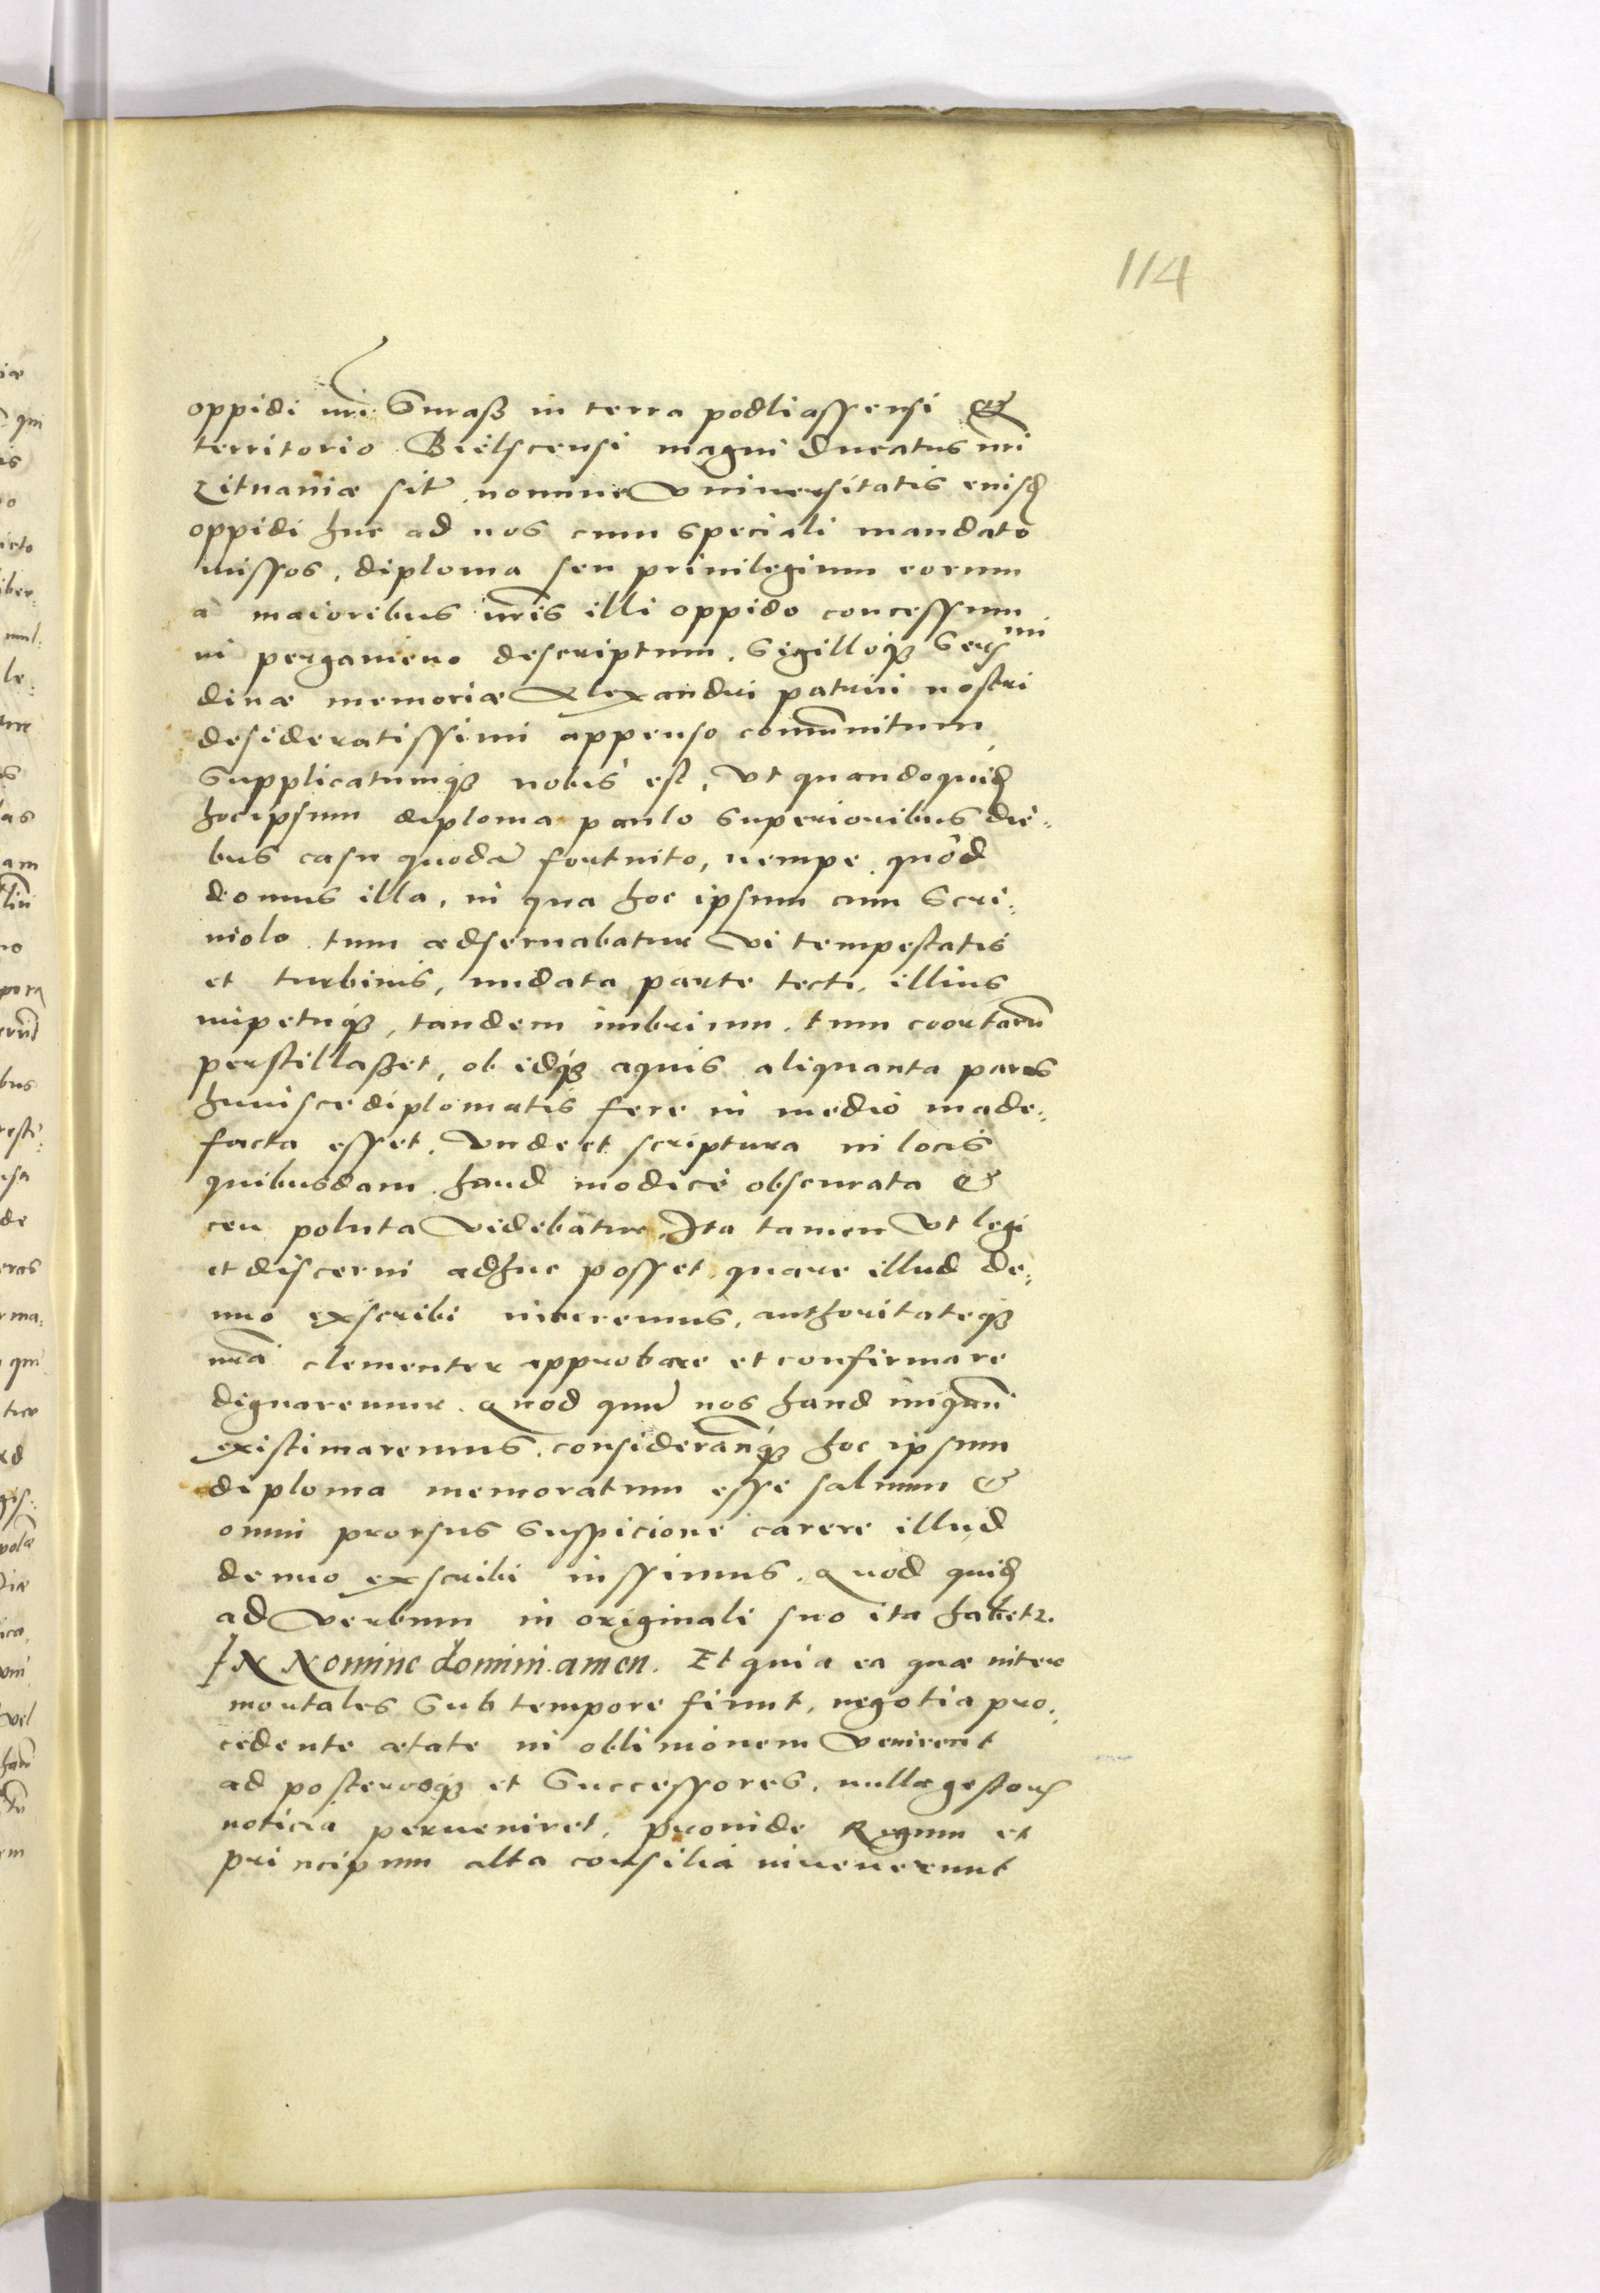 114
oppidi nri Suraß in terra podliassensi &
territorio Bielscensi magni ducatus nri
Lituaniæ siti nomine vniuersitatis euisd
oppidi huc ad nos cum speciali mandato
missos, diploma seu priuilegium eorum
a maioribus nris illi oppido concessum
in pergameno descriptum, Sigilloq Sermi
diuæ memoriæ Alexandri patrui nostri
desideratissimi appenso comunitum,
Supplicatumq nobis est, vt quandoquid
hoc ipsum diploma paulo superioribus die:
bus casu quodã fortuito, nempe quòd
domus illa, in qua hoc ipsum cum Scri:
niolo tum adseruabatur vi tempestatis
et turbinis, nudata parte tecti, illius
impetuq, tandem imbrium tum coortarũ
perstillaßet, ob idq aquis aliquanta pars
huiusce diplomatis fere in medio made:
facta esset, vnde et scriptura in locis
quibusdam haud modicè obscurata &
ceu poluta videbatur, Ita tamen vt legi
et discerni adhuc posset, quare illud de:
nuo exscribi iuberemus, authoritateq
nrã clementer approbare et confirmare
dignaremur. Quod quũ nos haud iniquũ
existimaremus, considerantq hoc ipsum
diploma memoratum esse saluum &
omni prorsus suspicione carere illud
denuo exscribi iussimus. Quod quid
ad verbum in originali suo ita habetr.
IN Nomine domini amen. Et quia ea quæ inter
mortales sub tempore fiunt, negotia pro:
cedente ætate in obliuionem venirent
ad posterosq et Successores, nulla gestor
noticia perueniret, prouide Regum et
principum alta consilia inuenerunt